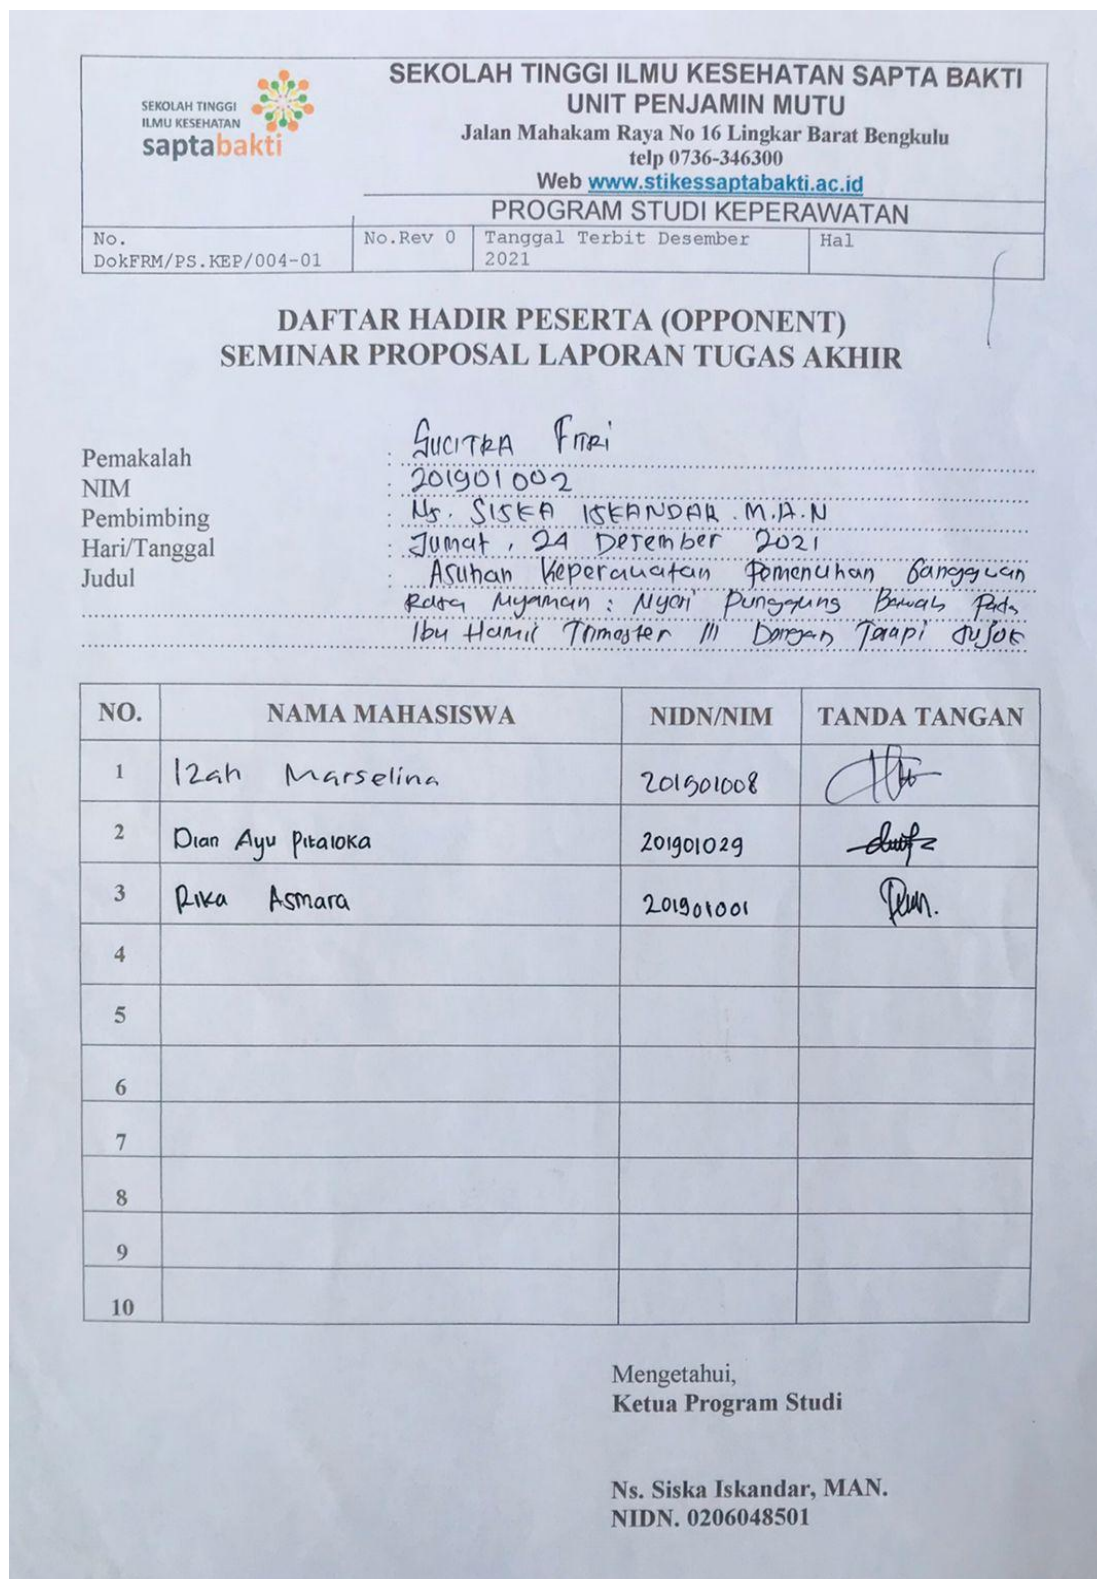 SEKOLAH TINGGI
ILMU KESEHATAN
saptabakti
SEKOLAH TINGGI ILMU KESEHATAN SAPTA BAKTI
UNIT PENJAMIN MUTU
Jalan Mahakam Raya No 16 Lingkar Barat Bengkulu
telp 0736-346300
Web www.stikessaptabakti.ac.id
PROGRAM STUDI KEPERAWATAN
No. DokFRM/PS.KEP/004-01 No.Rev 0 Tanggal Terbit Desember 2021 Hal
DAFTAR HADIR PESERTA (OPPONENT)
SEMINAR PROPOSAL LAPORAN TUGAS AKHIR
Pemakalah : SUCITRA FITRI
NIM : 201901002
Pembimbing : Ns. SISKA ISKANDAR . M.A.N
Hari/Tanggal : Jumat , 24 Desember 2021
Judul : Asuhan Keperawatan Pemenuhan Gangguan
Rasa Nyaman : Nyeri Punggung Bawah Pada
Ibu Hamil Trimester III Dengan Terapi Sujok
NO. NAMA MAHASISWA NIDN/NIM TANDA TANGAN
1 Izah Marselina 201901008
2 Dian Ayu Pitaloka 201901029
3 Rika Asmara 201901001
4
5
6
7
8
9
10
Mengetahui,
Ketua Program Studi
Ns. Siska Iskandar, MAN.
NIDN. 0206048501